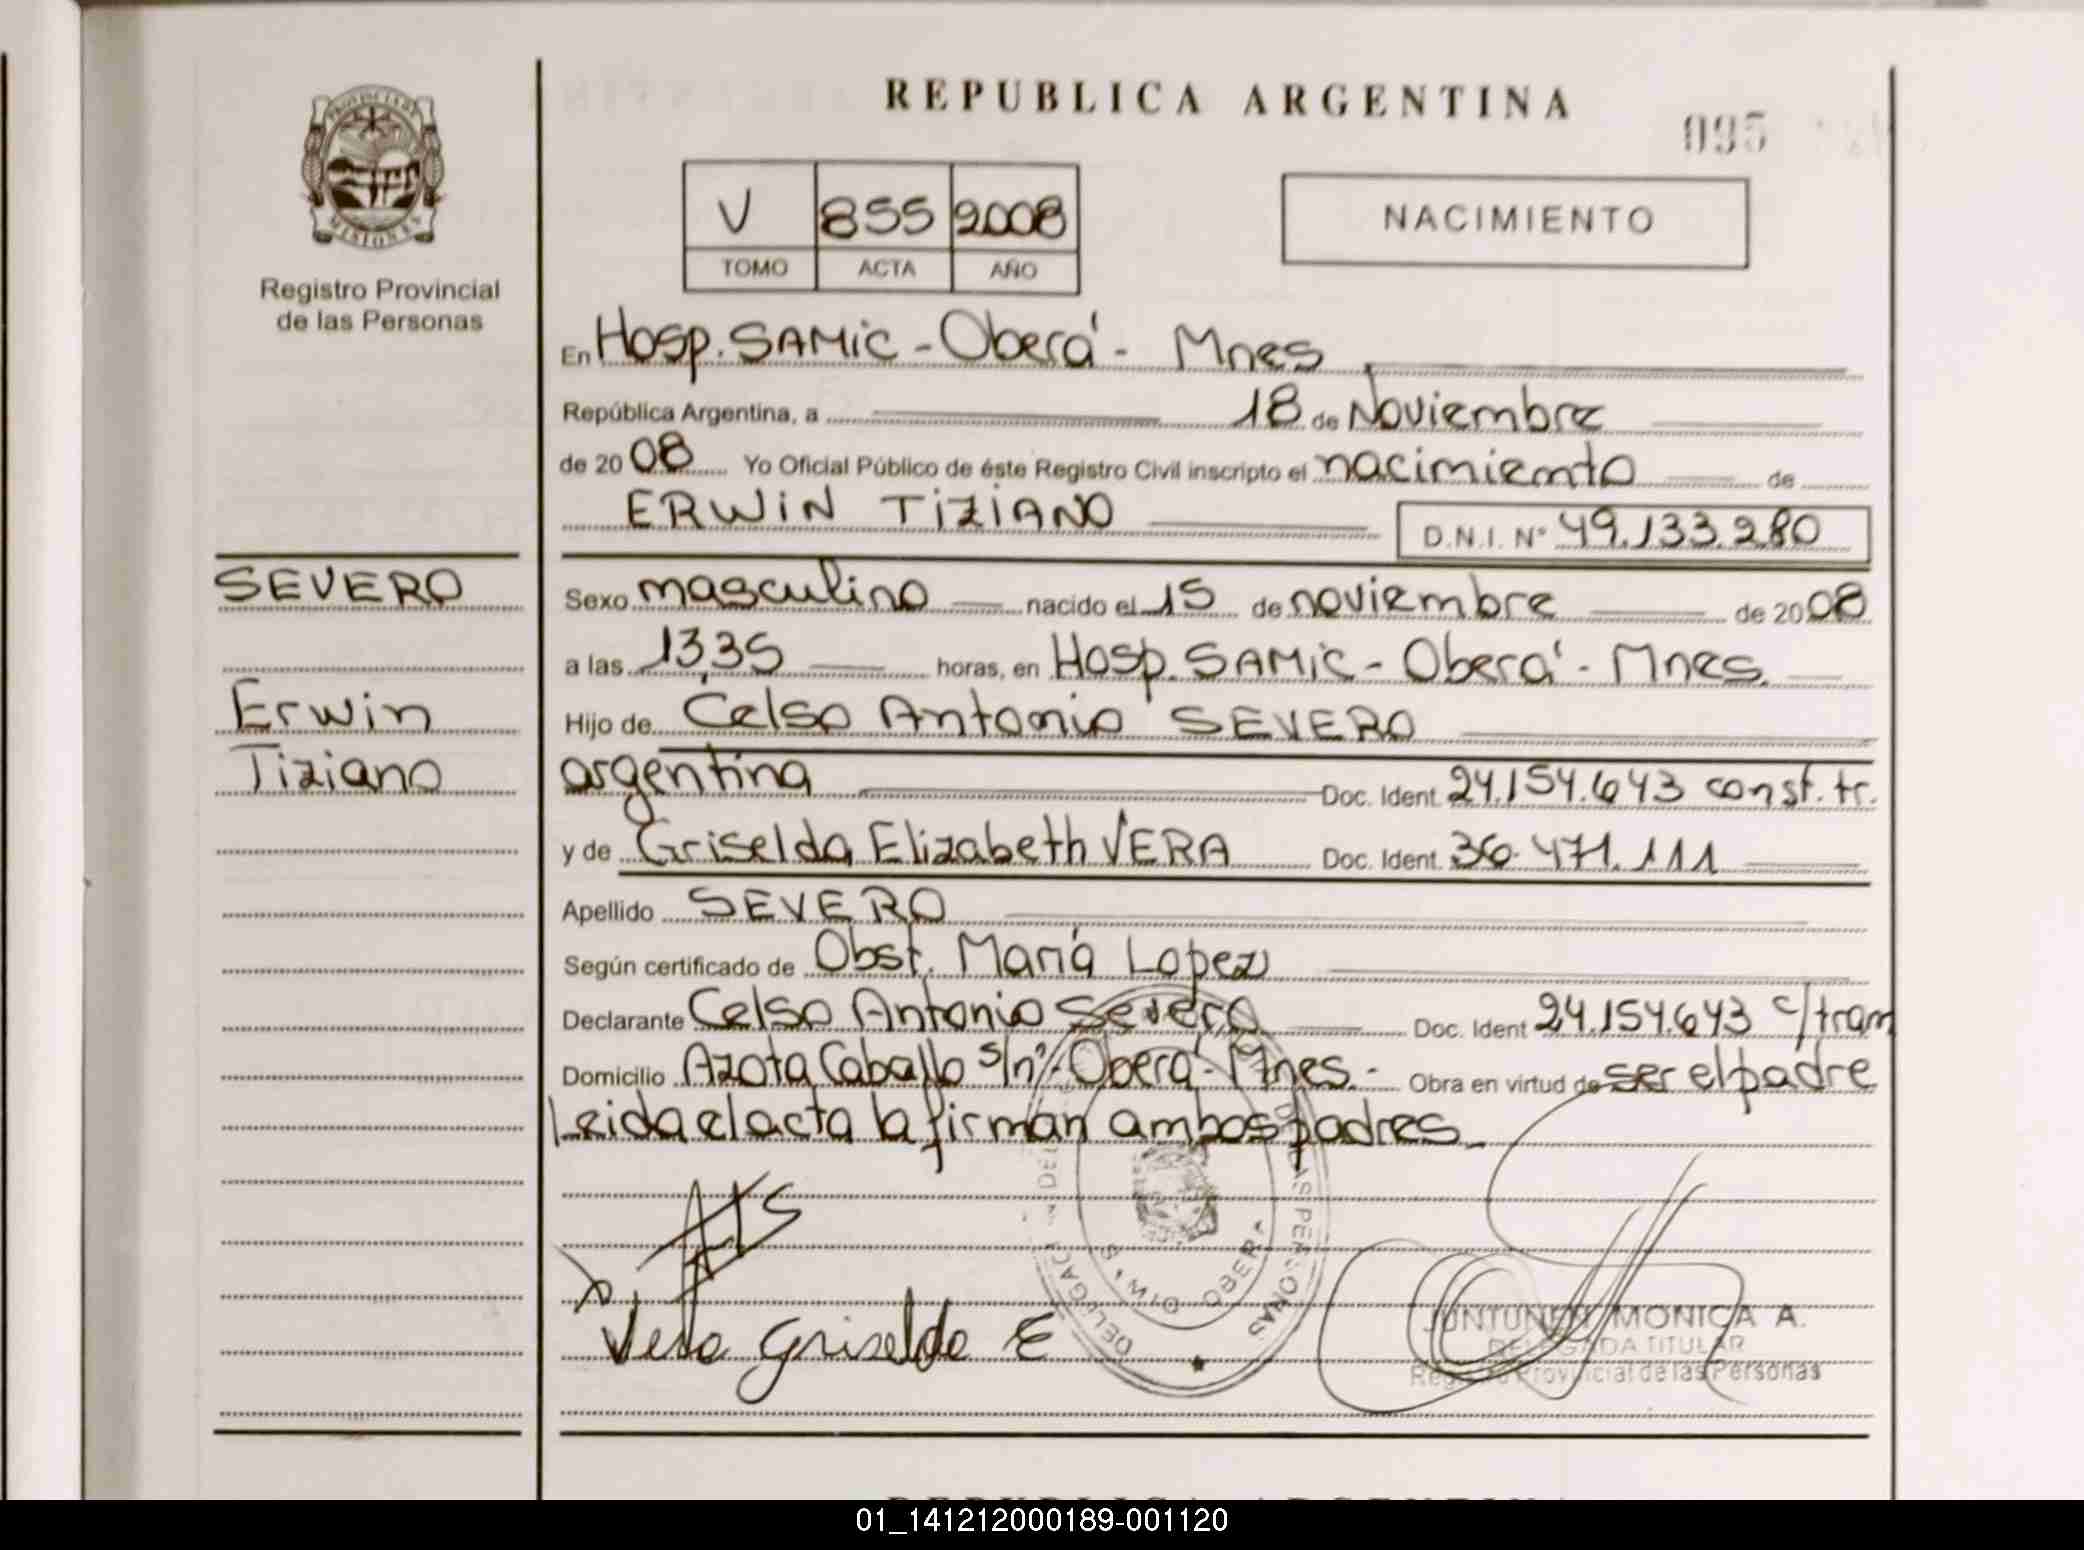 REPUBLICA ARGENTINA
095
PROVINCIA DE
MISIONES
Registro Provincial
de las Personas
V 855 2008
TOMO ACTA AÑO
NACIMIENTO
En Hosp. SAMIC - Oberá - Mnes
República Argentina, a 18 de Noviembre
de 2008 Yo Oficial Público de éste Registro Civil inscripto el nacimiento de
ERWIN TIZIANO D.N.I. Nº 49.133.280
SEVERO
Erwin
Tiziano
Sexo masculino nacido el 15 de noviembre de 2008
a las 13,35 horas, en Hosp. SAMIC - Oberá - Mnes.
Hijo de Celso Antonio SEVERO
argentina Doc. Ident. 24.154.643 const. tr.
y de Griselda Elizabeth VERA Doc. Ident. 36.471.111
Apellido SEVERO
Según certificado de Obst. María Lopez
Declarante Celso Antonio Severo Doc. Ident 24.154.643 c/tram
Domicilio Azota Caballo s/nº - Oberá - Mnes.- Obra en virtud de ser el padre
Leida el acta la firman ambos padres
Vera Griselda E
DE LAS PERSONAS
OBERA
JUNTUNEN MONICA A.
DELEGADA TITULAR
Registro Provincial de las Personas
01_141212000189-001120